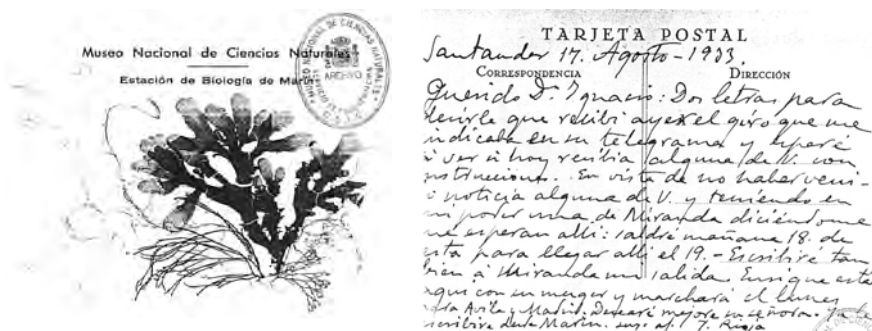 Museo Nacional de Ciencias Naturales
Estación de Biología de Marín
MUSEO NACIONAL DE CIENCIAS NATURALES
ARCHIVO
TARJETA POSTAL
Santander 17. Agosto-1933.
CORRESPONDENCIA
DIRECCIÓN
Querido D. Ignacio: Dos letras para
decirle que recibí ayer el giro que me
indicaba en su telegrama y esperé
a ver si hoy recibia alguna de V. con
instrucciones. En vista de no haber veni-
do noticia alguna de V. y teniendo en
mi poder una de Miranda diciéndome
me esperan allí: saldré mañana 18. de
esta para llegar allí el 19.- Escribiré tam
bien á Miranda mi salida. Enrique está
aqui con su muger y marchará el lunes
para Avila y Madrid. Desearé mejore su señora. Ya le
escribiré desde Marin.